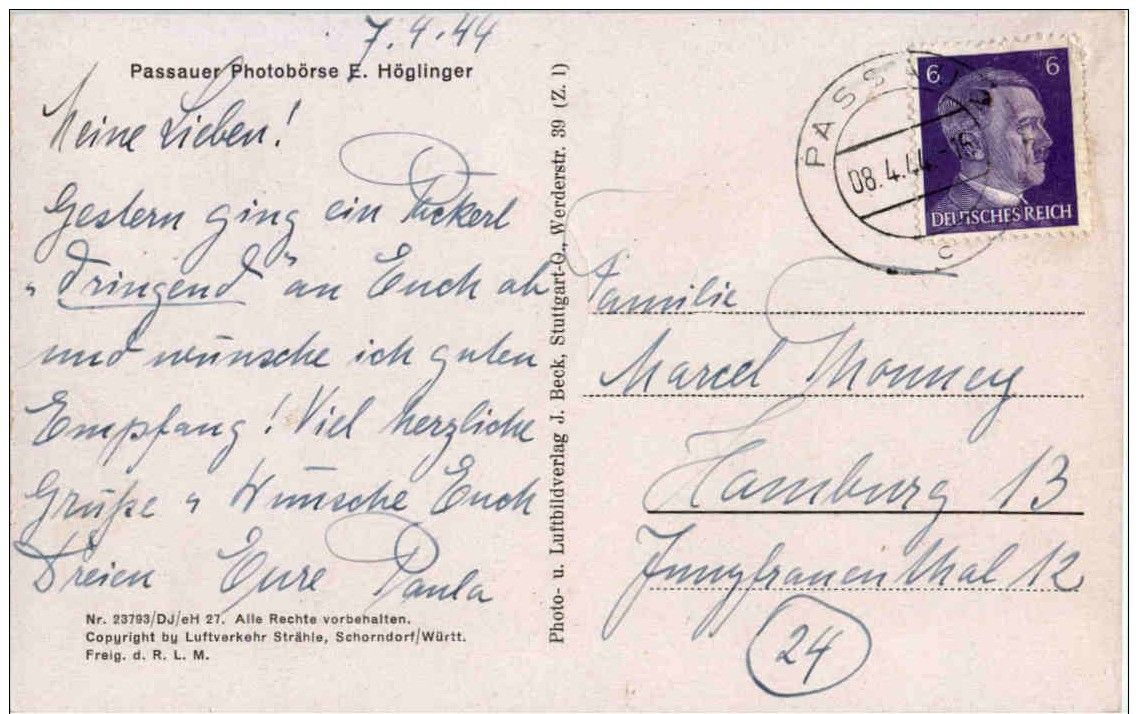 7.4.44
Passauer Photobörse E. Höglinger
Meine Lieben!
Gestern ging ein Packerl
„Dringend" an Euch ab
und wünsche ich guten
Empfang! Viel herzliche
Grüße u Wünsche Euch
Dreien Eure Paula
Nr. 23793/DJ/eH 27. Alle Rechte vorbehalten.
Copyright by Luftverkehr Strähle, Schorndorf/Württ.
Freig. d. R. L. M.
Photo- u. Luftbildverlag J. Beck, Stuttgart-O., Werderstr. 39 (Z. I)
PASSAU
08.4.44.-16
2
6 6
DEUTSCHES REICH
Familie
Marcel Monney
Hamburg 13
Jungfrauenthal 12
24